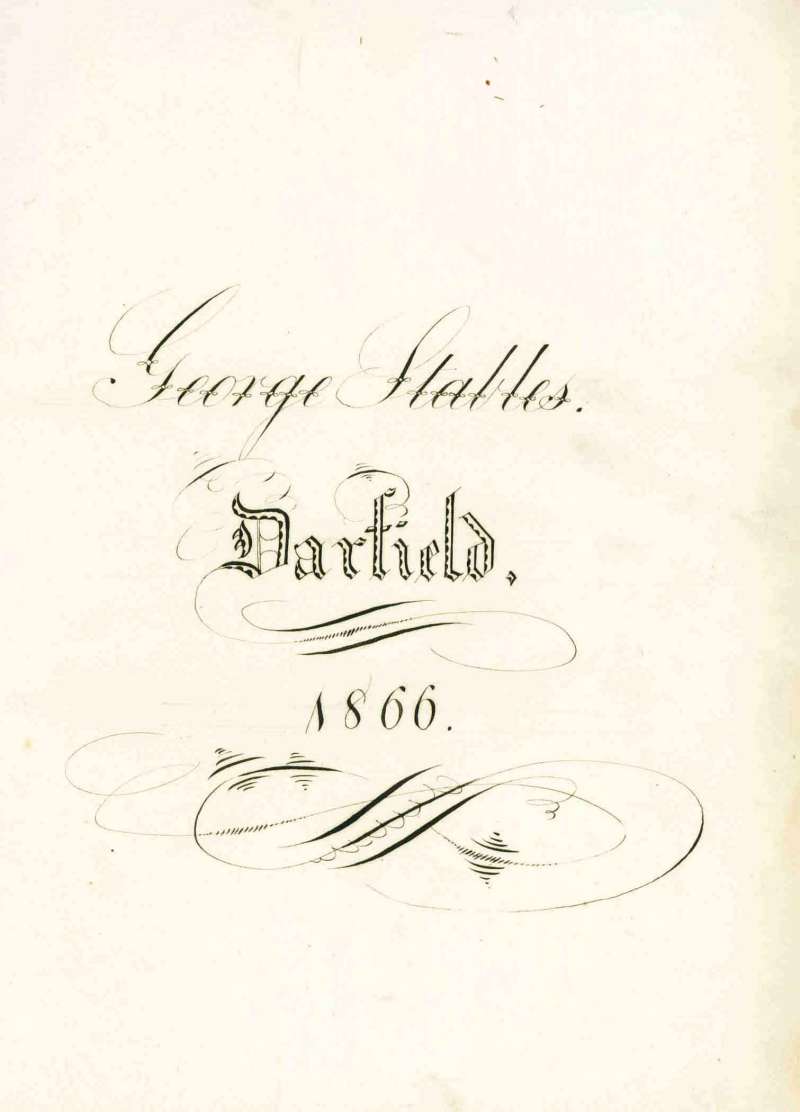 George Stables.
Darfield,
1866.